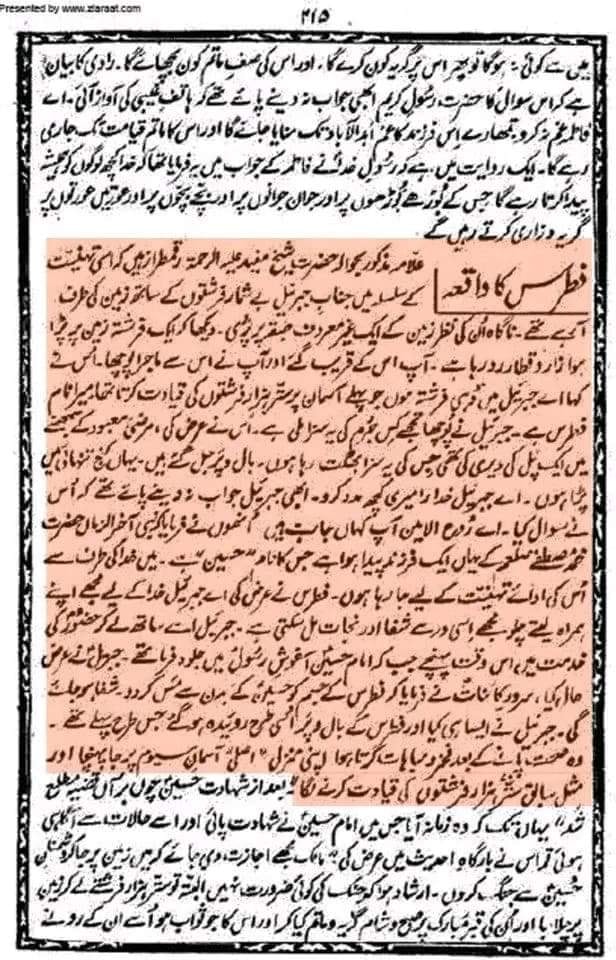 Presented by www.ziaraat.com
۲۱۵
میں سے کوئی نہ ہوگا تو پھر اس پر گریہ کون کرے گا۔ اور اس کی صف ماتم کون بچھائے گا۔ راوی کا بیان
ہے کہ اس سوال کا حضرت رسول کریم ابھی جواب نہ دینے پائے تھے کہ ہاتف غیبی کی آواز آئی۔ اے
فاطمہ غم نہ کرو تمھارے اس فرزند کا غم ابد الآباد تک منایا جائے گا اور اس کا ماتم قیامت تک جاری
رہے گا۔ ایک روایت میں ہے کہ رسول خدا نے فاطمہ کے جواب میں یہ فرمایا تھا کہ خدا کچھ لوگوں کو ہمیشہ
پیدا کرتا رہے گا جس کے بوڑھے بوڑھوں پر اور جوان جوانوں پر اور بچے بچوں پر اور عورتیں عورتوں پر
گریہ و زاری کرتے رہیں گے
فطرس کا واقعہ
علامہ مذکور بحوالہ حضرت شیخ مفید علیہ الرحمۃ رقمطراز ہیں کہ اسی تہنیت
کے سلسلہ میں جناب جبرئیل بے شمار فرشتوں کے ساتھ زمین کی طرف
آ رہے تھے۔ ناگاہ اُن کی نظر زمین کے ایک غیر معروف طبقہ پر پڑی۔ دیکھا کہ ایک فرشتہ زمین پر پڑا
ہوا زار و قطار رو رہا ہے۔ آپ اس کے قریب گئے اور آپ نے اس سے ماجرا پوچھا۔ اُس نے
کہا اے جبرئیل میں وہی فرشتہ ہوں جو پہلے آسمان پر ستر ہزار فرشتوں کی قیادت کرتا تھا میرا نام
فطرس ہے۔ جبرئیل نے پوچھا تجھے کس جرم کی یہ سزا ملی ہے۔ اس نے عرض کی، مرضی معبود کے سمجھنے
میں ایک پل کی دیری کی تھی جس کی یہ سزا بھگت رہا ہوں۔ بال و پر جل گئے ہیں۔ یہاں کنج تنہائی میں
پڑا ہوں۔ اے جبرئیل خدارا میری کچھ مدد کرو۔ ابھی جبرئیل جواب نہ دینے پائے تھے کہ اُس
نے سوال کیا۔ اے روح الامین آپ کہاں جا رہے ہیں انھوں نے فرمایا کہ نبی آخر الزماں حضرت
محمد مصطفےٰ صلعم کے یہاں ایک فرزند پیدا ہوا ہے جس کا نام "حسین" ہے۔ میں خدا کی طرف سے
اُس کی ادائے تہنیت کے لیے جا رہا ہوں۔ فطرس نے عرض کی اے جبرئیل خدا کے لیے مجھے اپنے
ہمراہ لیتے چلو مجھے اسی در سے شفا اور نجات مل سکتی ہے۔ جبرئیل اسے ساتھ لے کر حضور کی
خدمت میں اس وقت پہنچے جب کہ امام حسین آغوش رسول میں جلوہ فرما تھے۔ جبرئیل نے عرض
حال کیا، سرور کائنات نے فرمایا کہ فطرس کے جسم کو حسین کے بدن سے مس کر دو۔ شفا ہو جائے
گی۔ جبرئیل نے ایسا ہی کیا اور فطرس کے بال و پر اُسی طرح روئیدہ ہو گئے جس طرح پہلے تھے۔
وہ صحت پانے کے بعد فخر و مباہات کرتا ہوا اپنی منزل "اصلی" آسمان سیوم پر جا پہنچا اور
مثل سابق ستر ہزار فرشتوں کی قیادت کرنے لگا "بعد از شہادت حسین چوں بر آں قضیہ مطلع
شد" یہاں تک کہ وہ زمانہ آیا جس میں امام حسین نے شہادت پائی اور اسے حالات سے آگاہی
ہوئی تو اس نے بارگاہ احدیت میں عرض کی مالک مجھے اجازت دی جائے کہ میں زمین پر جا کر دشمنان
حسین سے جنگ کروں۔ ارشاد ہوا کہ جنگ کی کوئی ضرورت نہیں البتہ تو ستر ہزار فرشتے لے کر زمین
پر چلا جا اور اُن کی قبر مبارک پر صبح و شام گریہ و ماتم کیا کر اور اس کا جو ثواب ہو اُسے ان کے رونے